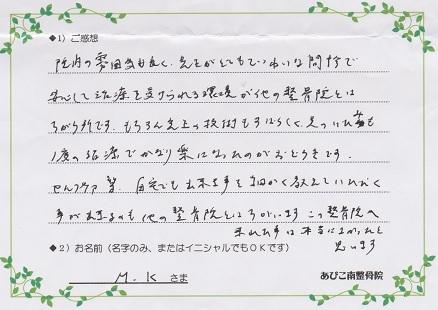 ◆1）ご感想
院内の雰囲気も良く、先生がとてもていねいな問診で
安心して治療を受けられる環境が他の整骨院とは
ちがう所です。もちろん先生の技術もすばらしく、
1度の治療でかなり楽になったのがおどろきです。
セルフケア 等、自宅でも出来る事を細かく教えていただく
事が出来るのも他の整骨院とはちがいます この整骨院へ
来れた事は本当によかったと
思います
◆2）お名前（名字のみ、またはイニシャルでもOKです）
M.K さま
あびこ南整骨院